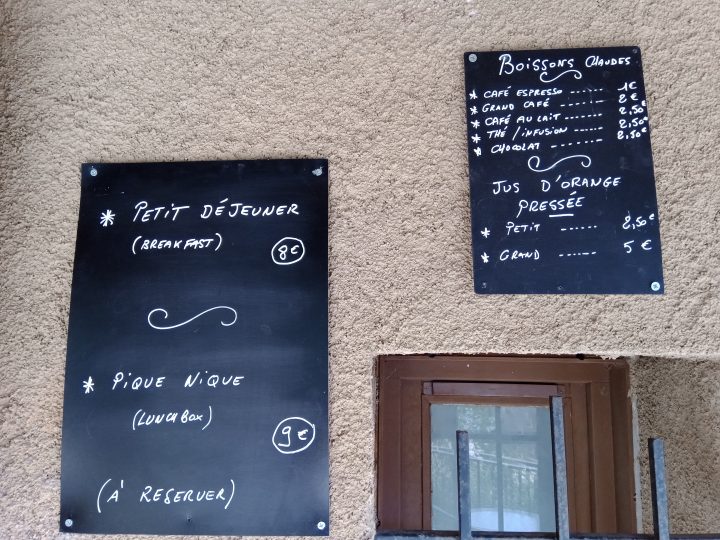 * PETIT DÉJEUNER
(BREAKFAST)
8€
* PIQUE NIQUE
(LUNCH BOX)
9€
(À RESERVER)
BOISSONS CHAUDES
* CAFÉ ESPRESSO ------ 1€
* GRAND CAFÉ ------ 2€
* CAFÉ AU LAIT ------ 2,50€
* THÉ / INFUSION ------ 2,50€
* CHOCOLAT ------ 2,50€
JUS D'ORANGE
PRESSÉE
* PETIT ------ 2,50€
* GRAND ------ 5 €